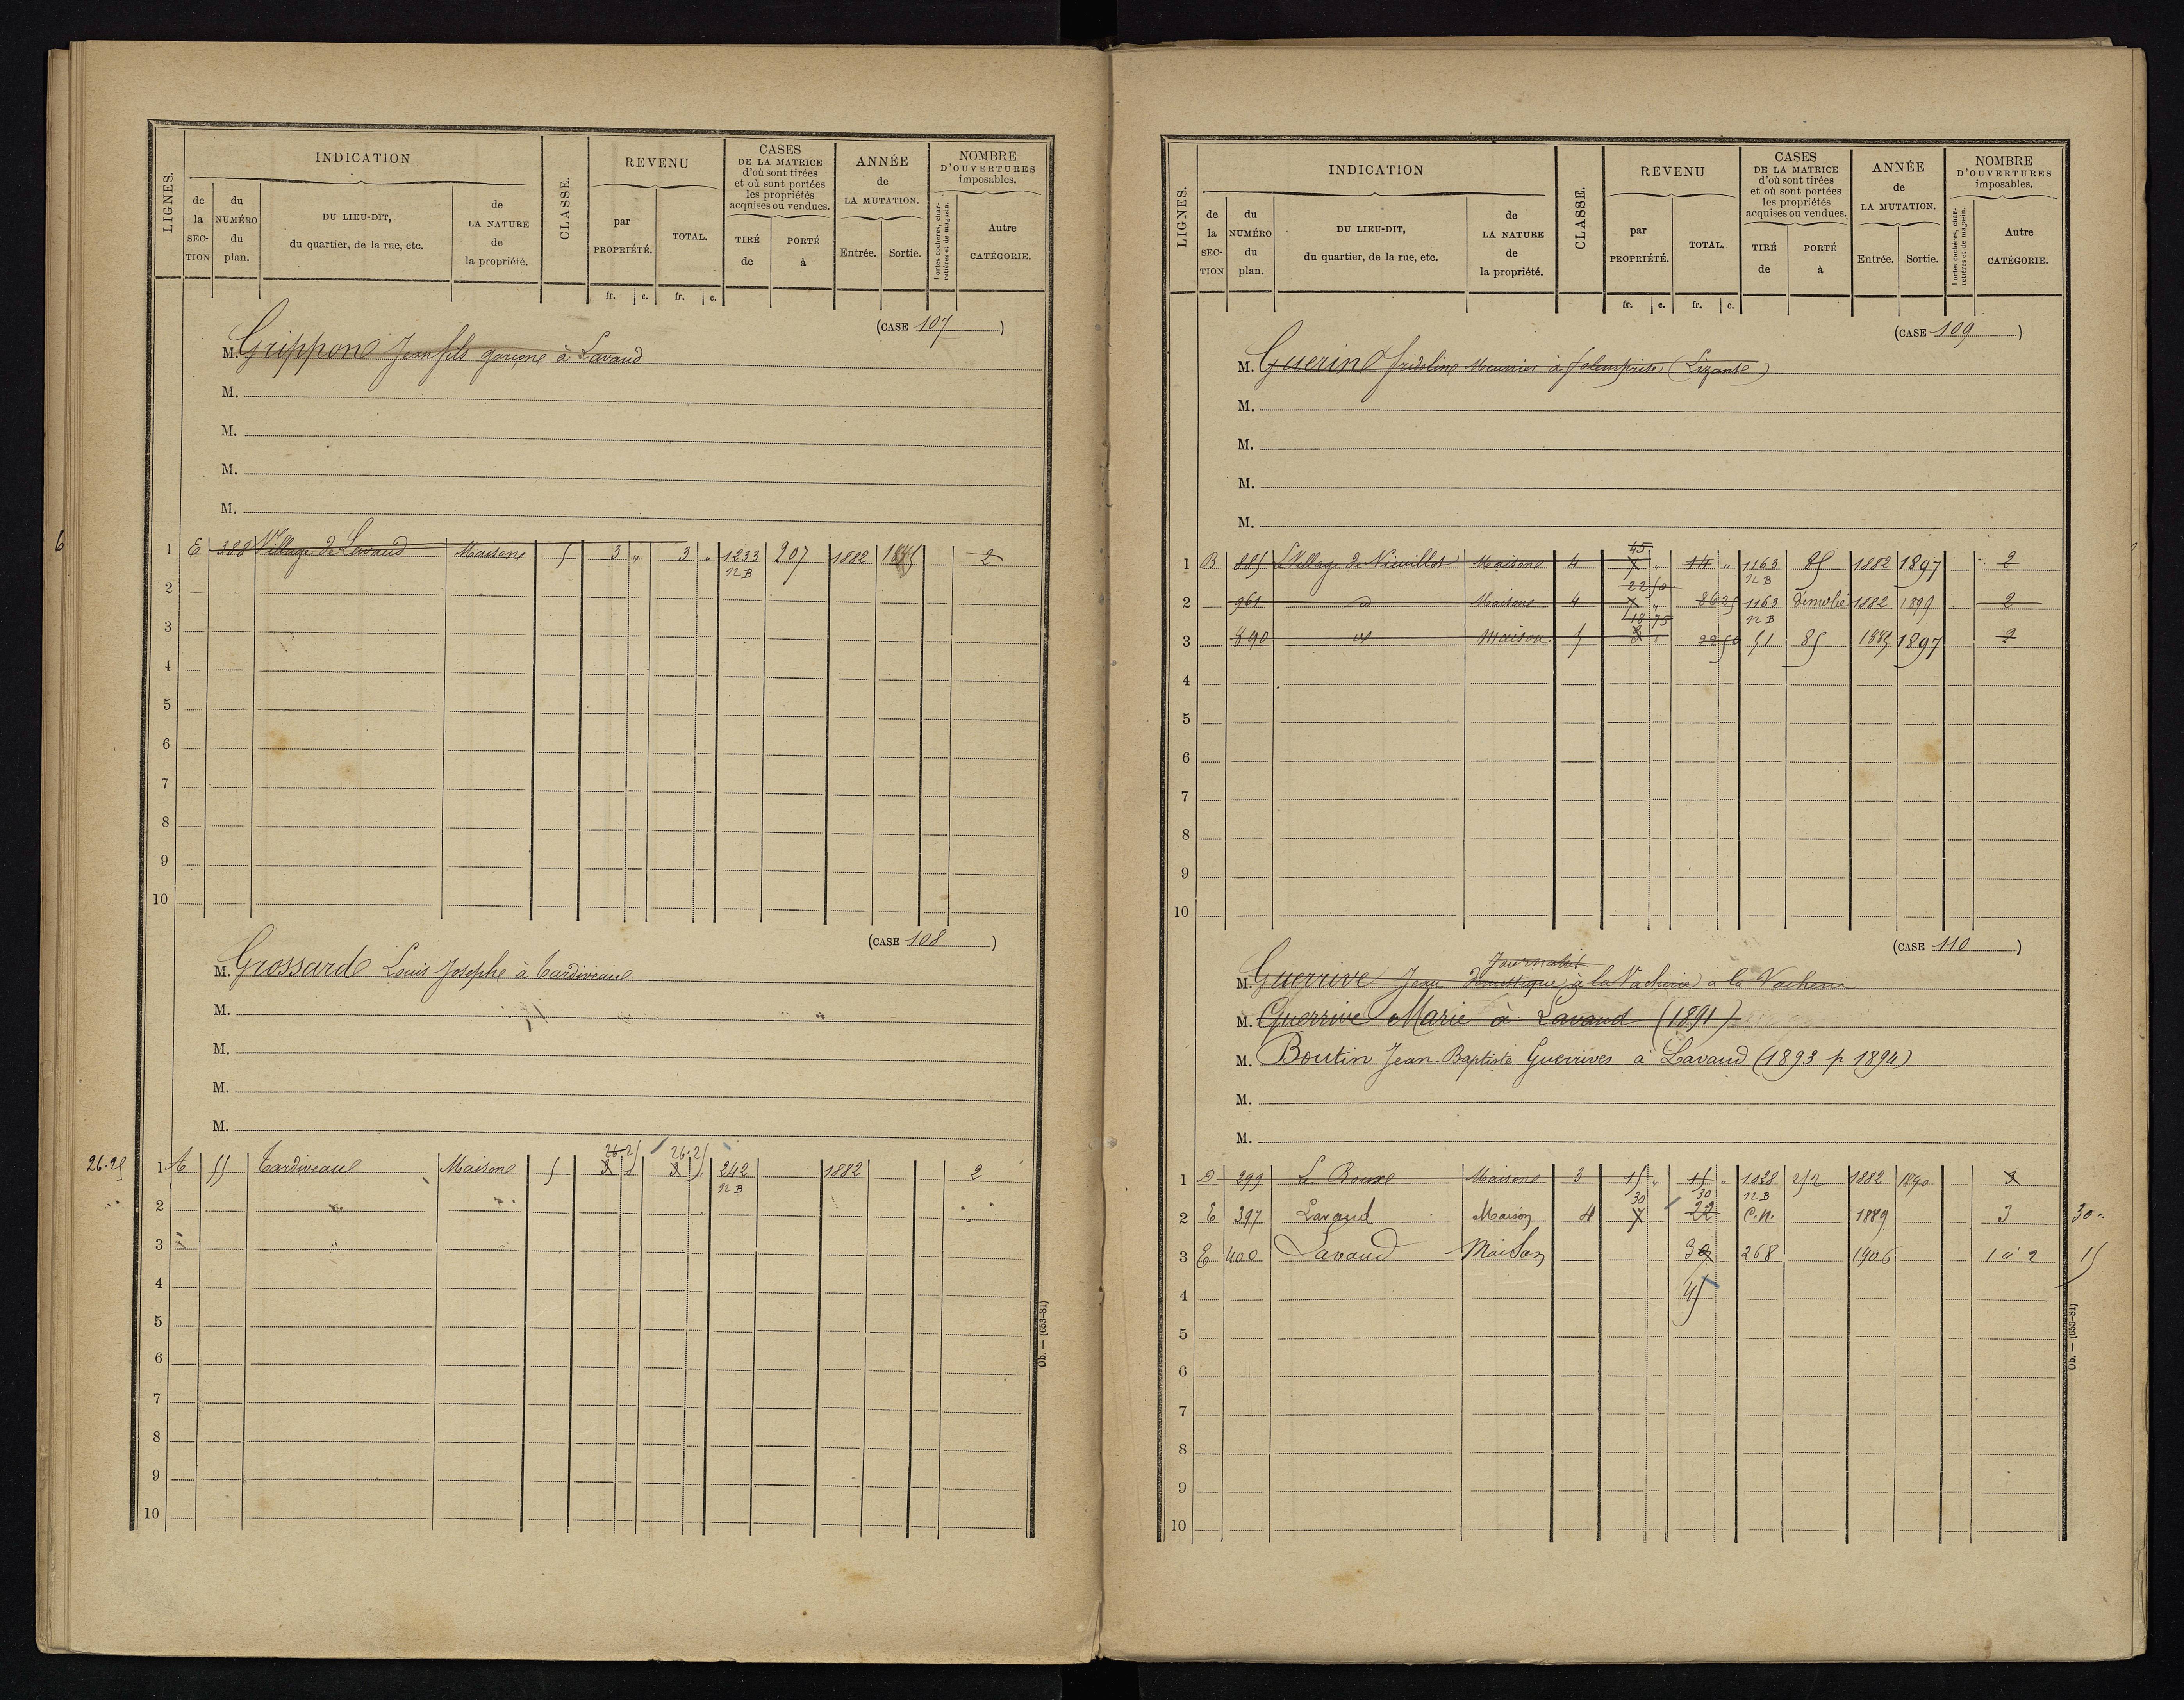 LIGNES.
INDICATION
de la SECTION
du NUMÉRO du plan.
DU LIEU-DIT, du quartier, de la rue, etc.
de LA NATURE de la propriété.
CLASSE.
REVENU
par PROPRIÉTÉ.
TOTAL.
fr. c. fr. c.
CASES DE LA MATRICE d'où sont tirées et où sont portées les propriétés acquises ou vendues.
TIRÉ de
PORTÉ à
ANNÉE de LA MUTATION.
Entrée. Sortie.
NOMBRE D'OUVERTURES imposables.
Portes cochères, charretières et de magasin.
Autre CATÉGORIE.
(CASE 107)
M. Grippon Jean fils garçon à Lavaud
M.
M.
M.
M.
6
1 E 388 Village de Lavaud Maison 5 3 " 3 " 1233 207 1882 2
n B
2
3
4
5
6
7
8
9
10
(CASE 108)
M. Grossard Louis Joseph à Tardiveau
M.
M.
M.
M.
26.25 26.25
26.25 1 A 55 Tardiveau Maison 5 3 3 242 1882 2
n B
2
3
4
5
6
7
8
9
10
Ob. — (653-81)
LIGNES.
INDICATION
de la SECTION
du NUMÉRO du plan.
DU LIEU-DIT, du quartier, de la rue, etc.
de LA NATURE de la propriété.
CLASSE.
REVENU
par PROPRIÉTÉ.
TOTAL.
fr. c. fr. c.
CASES DE LA MATRICE d'où sont tirées et où sont portées les propriétés acquises ou vendues.
TIRÉ de
PORTÉ à
ANNÉE de LA MUTATION.
Entrée. Sortie.
NOMBRE D'OUVERTURES imposables.
Portes cochères, charretières et de magasin.
Autre CATÉGORIE.
(CASE 109)
M. Guerin Fridolin Meunier à (Lizant)
M.
M.
M.
M.
45
1 B 885 Village de Maison 4 7 " 14 " 1163 85 1882 1897 2
22 50 n B
2 961 d Maison 4 7 " 86 25 1163 Démolie 1882 1899 2
18 75 n B
3 890 d Maison 5 3 " 22 50 51 85 1885 1897 2
4
5
6
7
8
9
10
(CASE 110)
Journalier
M. Guerrive Jean domestique à la Vacherie à la Vacherie
M. Guerrive Marie à Lavaud (1891)
M. Boutin Jean-Baptiste Guerrives à Lavaud (1893 p 1894)
M.
M.
1 D 299 Maison 3 15 " 15 " 1028 252 1882 1890 3
30 30 n B
2 E 397 Lavaud Maison 4 7 22 C.N. 1889 3 30 "
3 E 400 Lavaud Maison 30 268 1906 1 à 2 15
4 45
5
6
7
8
9
10
Ob. — (653-81)